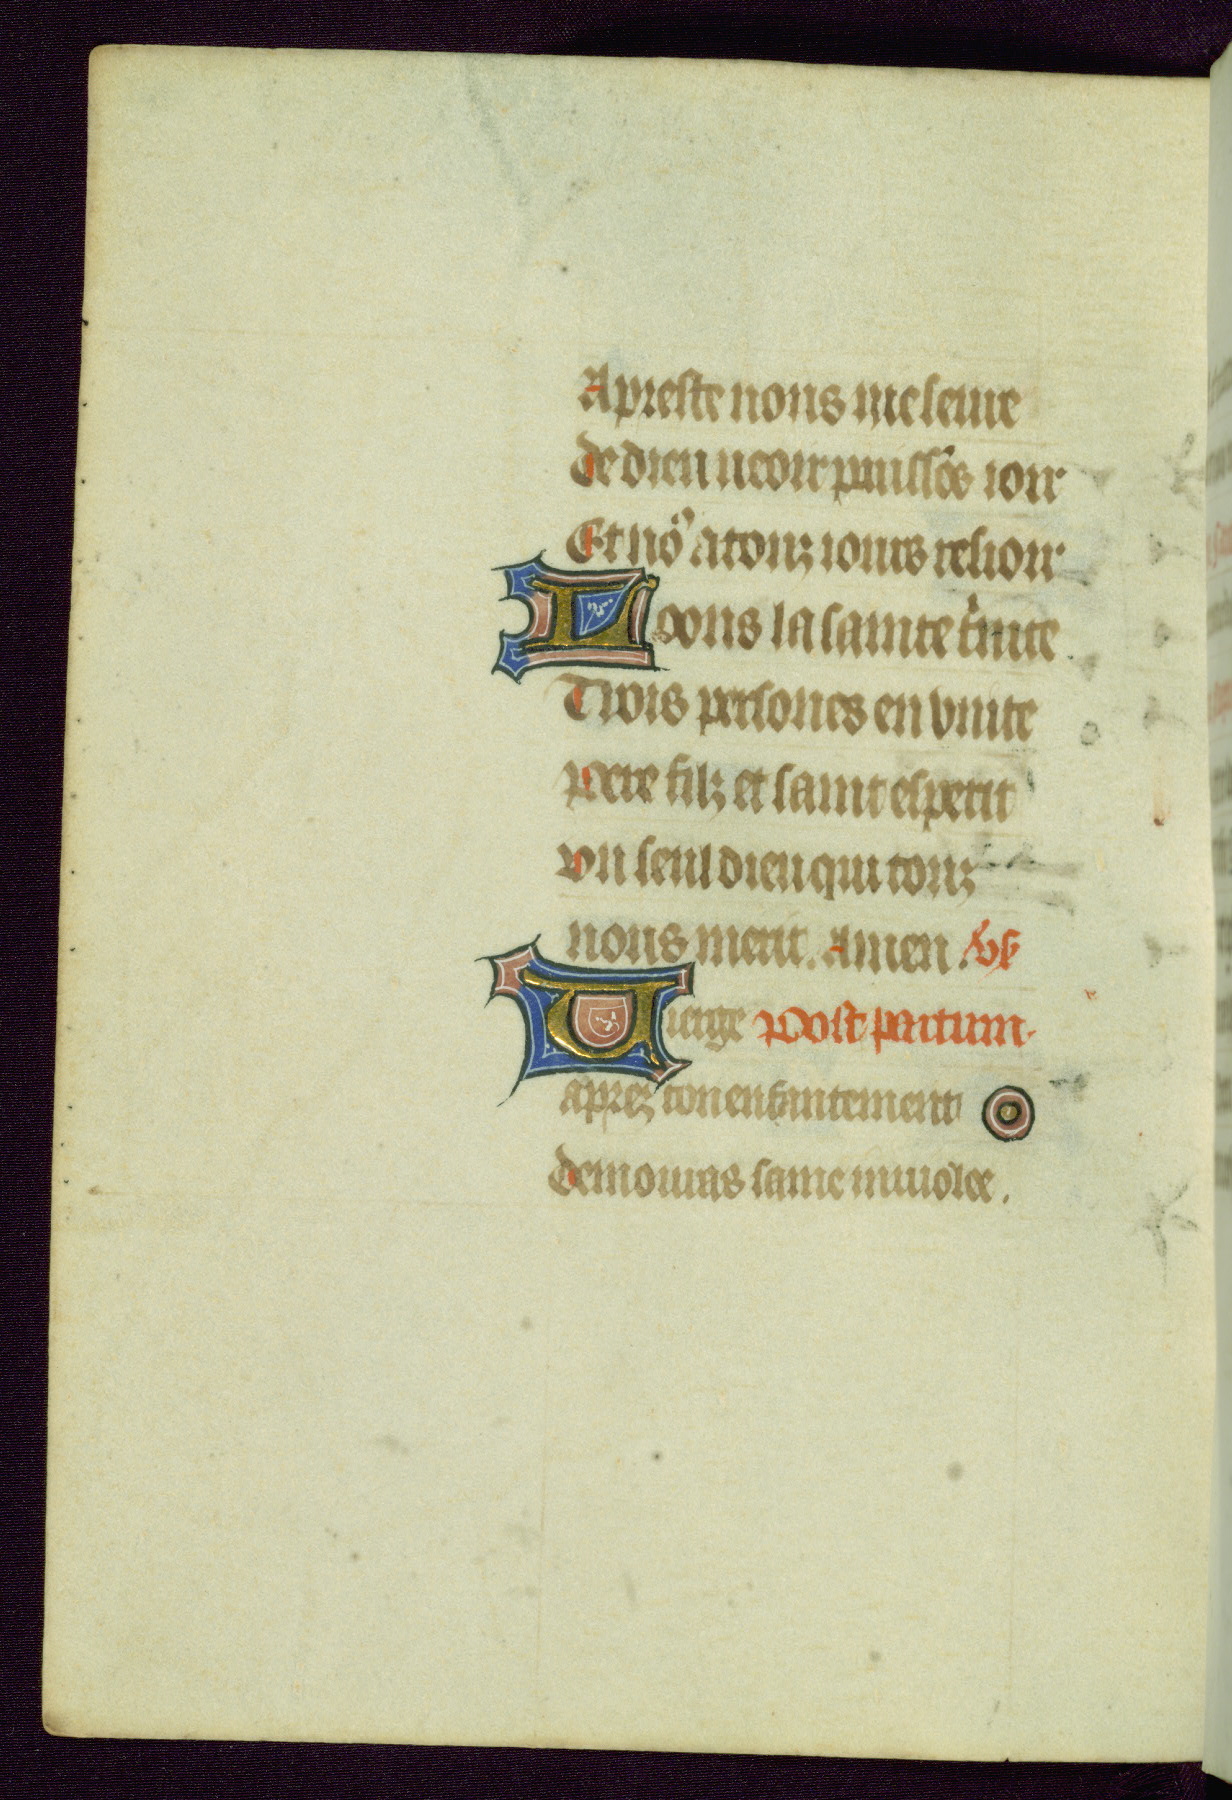 Apreste nous me seure
de dieu ueoir puissōs ioir
Et nō⁹ a touz iours resioir
Loons la sainte t'nite
Trois persones en vnite
Pere filz et saint esperit
Vn seul dieu qui touz
nous merit. Amen. vs̄
Uierge Post partum.
aprez ton enfantement
demouras sanz muiolee.